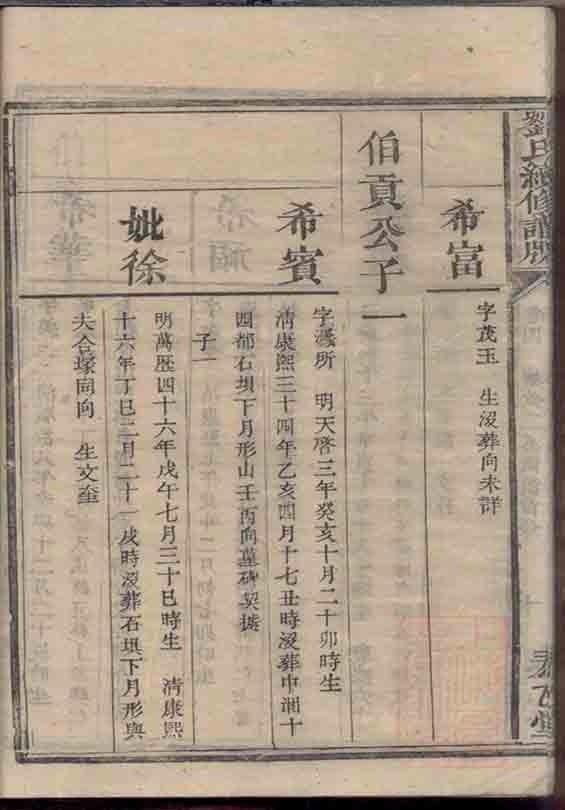 劉氏續修譜牒
希富
字茂玉 生沒葬向未詳
伯貢公子一
希賓
字瀛所 明天啓三年癸亥十月二十卯時生
清康熙三十四年乙亥四月十七丑時沒葬中洞十
四都石垻下月形山壬丙向墓碑契據
子一
妣徐
明萬歷四十六年戊午七月三十巳時生 清康熙
十六年丁巳二月二十一戌時沒葬石垻下月形與
夫合塚同向 生文奎